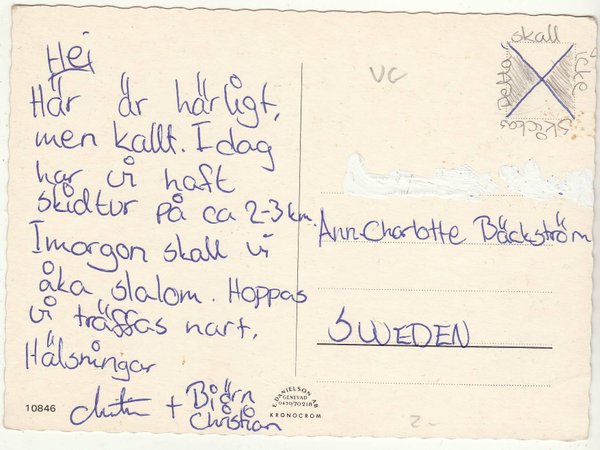 Hej
Här är härligt,
men kallt. I dag
har vi haft
skidtur på ca 2-3 km.
Imorgon skall vi
åka slalom. Hoppas
vi träffas nart.
Hälsningar
+ Björn
Christian
10846
E. DANIELSON AB
GENEVAD
0430/70218
KRONOCROM
VC
Detta skall icke skickas
Ann-Charlotte Bäckström
SWEDEN
2-